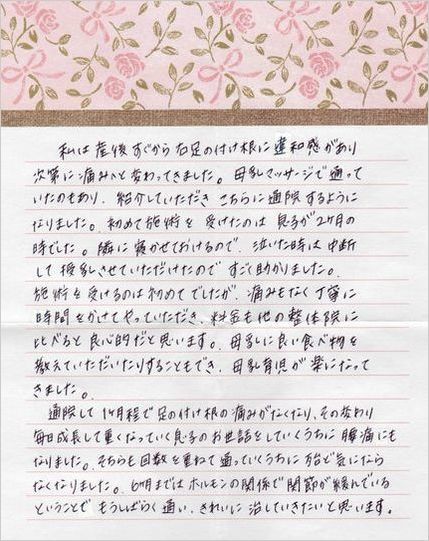 私は産後すぐから右足の付け根に違和感があり
次第に痛みへと変わってきました。母乳マッサージで通って
いたのもあり、紹介していただきこちらに通院するように
なりました。初めて施術を受けたのは息子が2ヶ月の
時でした。隣に寝かせておけるので、泣いた時は中断
して授乳させていただけたのですごく助かりました。
施術を受けるのは初めてでしたが、痛みもなく丁寧に
時間をかけてやっていただき、料金も他の整体院に
比べると良心的だと思います。母乳に良い食べ物を
教えていただいたりすることもでき、母乳育児が楽になって
きました。
通院して1ヶ月程で足の付け根の痛みがなくなり、その変わり
毎日成長して重くなっていく息子のお世話をしていくうちに腰痛にも
なりました。そちらも回数を重ねて通っていくうちに殆ど気になら
なくなりました。6ヶ月まではホルモンの関係で関節が緩んでいる
ということでもうしばらく通い、きれいに治していきたいと思います。